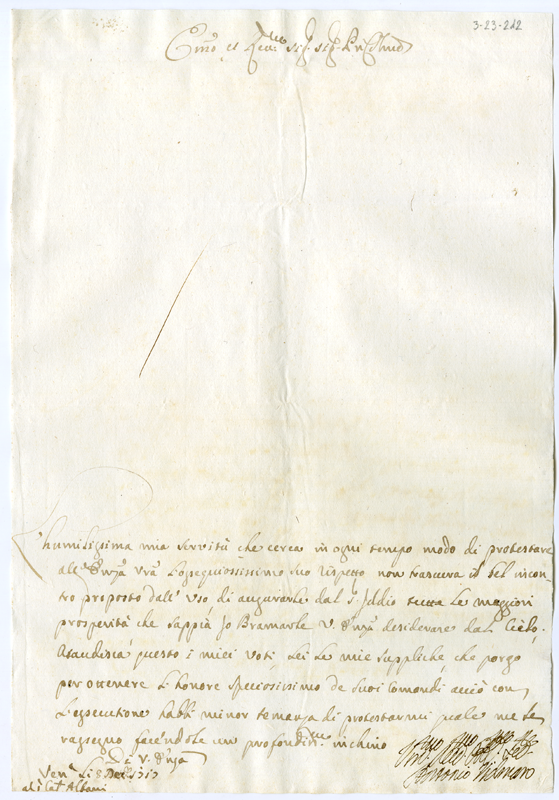 3-23-242
Em.o et Rev.mo Sig.r Sig.r P.n Col.mo
L'humilissima mia servitù che cerca in ogni tempo modo di protestare
all'Em.za Vra L'ossequiosissimo suo rispetto non trascura il bel incon
tro proposto dall'Uso di augurarle dal S.r Iddio tutte le maggiori
prosperità che sappia Io Bramarle V. Em.za desiderare dal Cielo.
Esaudisca questo i miei voti, Lei Le mie suppliche che porgo
per ottenere L'honore speciosissimo de suoi Comandi acciò con
L'essecutione habbi minor temanza di protestarmi quale me Le
rassegno facendole un profondiss.mo inchino
Di V. Em.za
Ven.a Li 8 Dec.
al Car. Albani
Antonio